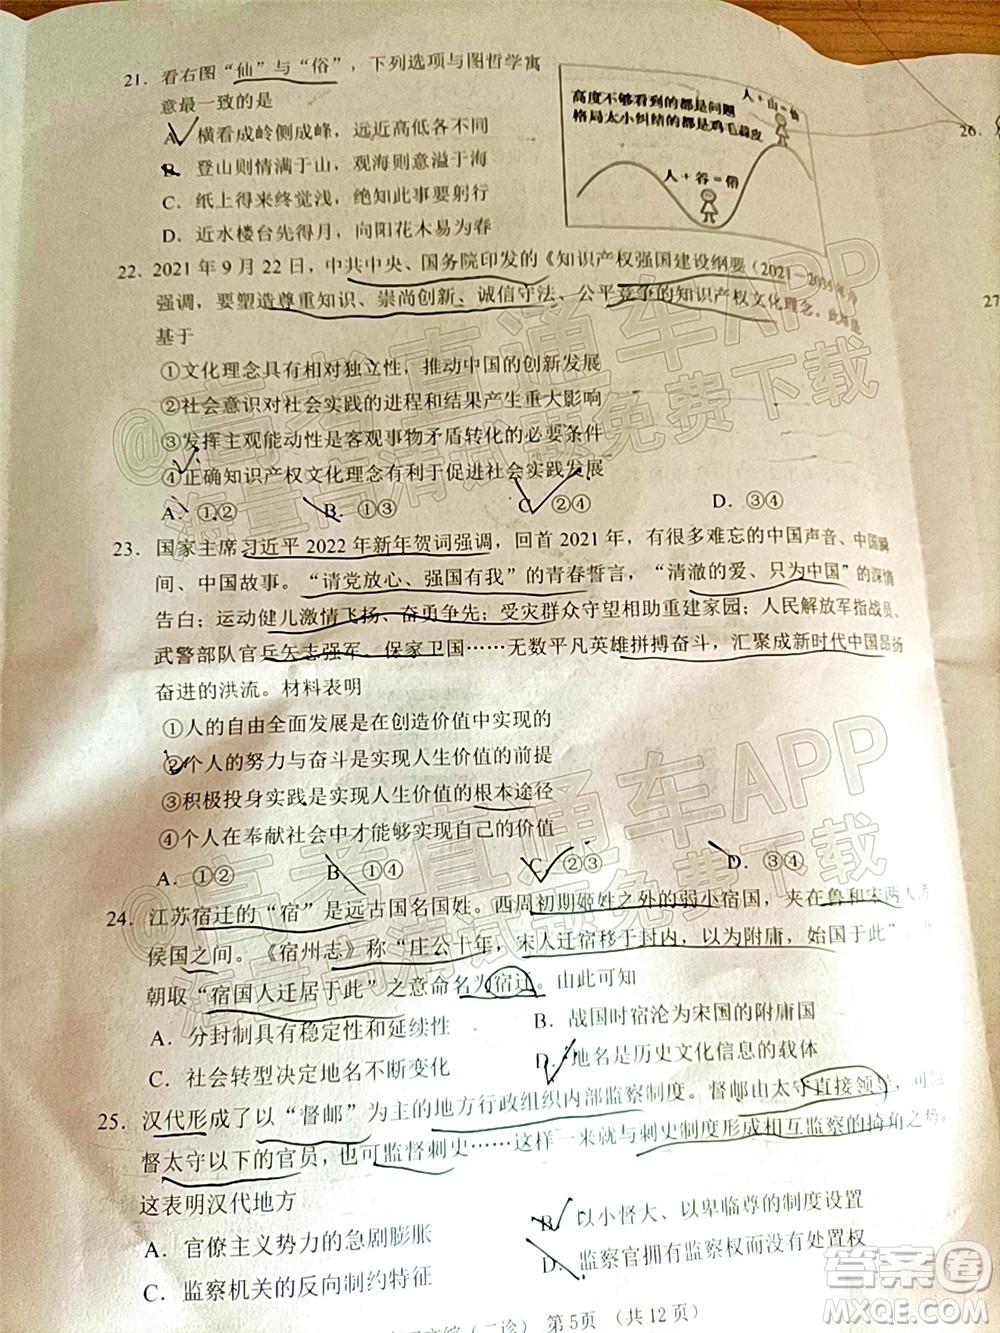 21. 看右图“仙”与“俗”，下列选项与图哲学寓
意最一致的是
A. 横看成岭侧成峰，远近高低各不同
B. 登山则情满于山，观海则意溢于海
C. 纸上得来终觉浅，绝知此事要躬行
D. 近水楼台先得月，向阳花木易为春
人+山=仙
高度不够看到的都是问题
格局太小纠结的都是鸡毛蒜皮
人+谷=俗
22. 2021年9月22日，中共中央、国务院印发的《知识产权强国建设纲要（2021—2035年）》
强调，要塑造尊重知识、崇尚创新、诚信守法、公平竞争的知识产权文化理念。
基于
①文化理念具有相对独立性，推动中国的创新发展
②社会意识对社会实践的进程和结果产生重大影响
③发挥主观能动性是客观事物矛盾转化的必要条件
④正确知识产权文化理念有利于促进社会实践发展
A. ①② B. ①③ C. ②④ D. ③④
23. 国家主席习近平2022年新年贺词强调，回首2021年，有很多难忘的中国声音、中国瞬
间、中国故事。“请党放心、强国有我”的青春誓言，“清澈的爱、只为中国”的深情
告白；运动健儿激情飞扬、奋勇争先；受灾群众守望相助重建家园；人民解放军指战员、
武警部队官兵矢志强军、保家卫国……无数平凡英雄拼搏奋斗，汇聚成新时代中国昂扬
奋进的洪流。材料表明
①人的自由全面发展是在创造价值中实现的
②个人的努力与奋斗是实现人生价值的前提
③积极投身实践是实现人生价值的根本途径
④个人在奉献社会中才能够实现自己的价值
A. ①② B. ①④ C. ②③ D. ③④
24. 江苏宿迁的“宿”是远古国名国姓。西周初期姬姓之外的弱小宿国，夹在鲁和宋两大诸
侯国之间。《宿州志》称“庄公十年，宋人迁宿移于封内，以为附庸，始国于此”，
朝取“宿国人迁居于此”之意命名为宿迁。由此可知
A. 分封制具有稳定性和延续性 B. 战国时宿沦为宋国的附庸国
C. 社会转型决定地名不断变化 D. 地名是历史文化信息的载体
25. 汉代形成了以“督邮”为主的地方行政组织内部监察制度。督邮由太守直接领导，可
督太守以下的官员，也可监督刺史……这样一来，就与刺史制度形成相互监察的掎角之势。
这表明汉代地方
A. 官僚主义势力的急剧膨胀 B. 以小督大、以卑临尊的制度设置
C. 监察机关的反向制约特征 D. 监察官拥有监察权而无处置权
（二诊） 第5页 （共12页）
26.
27
@高考直通车APP
海量高清试题免费下载
@高考直通车APP
海量高清试题免费下载
答案卷
MXQE.COM